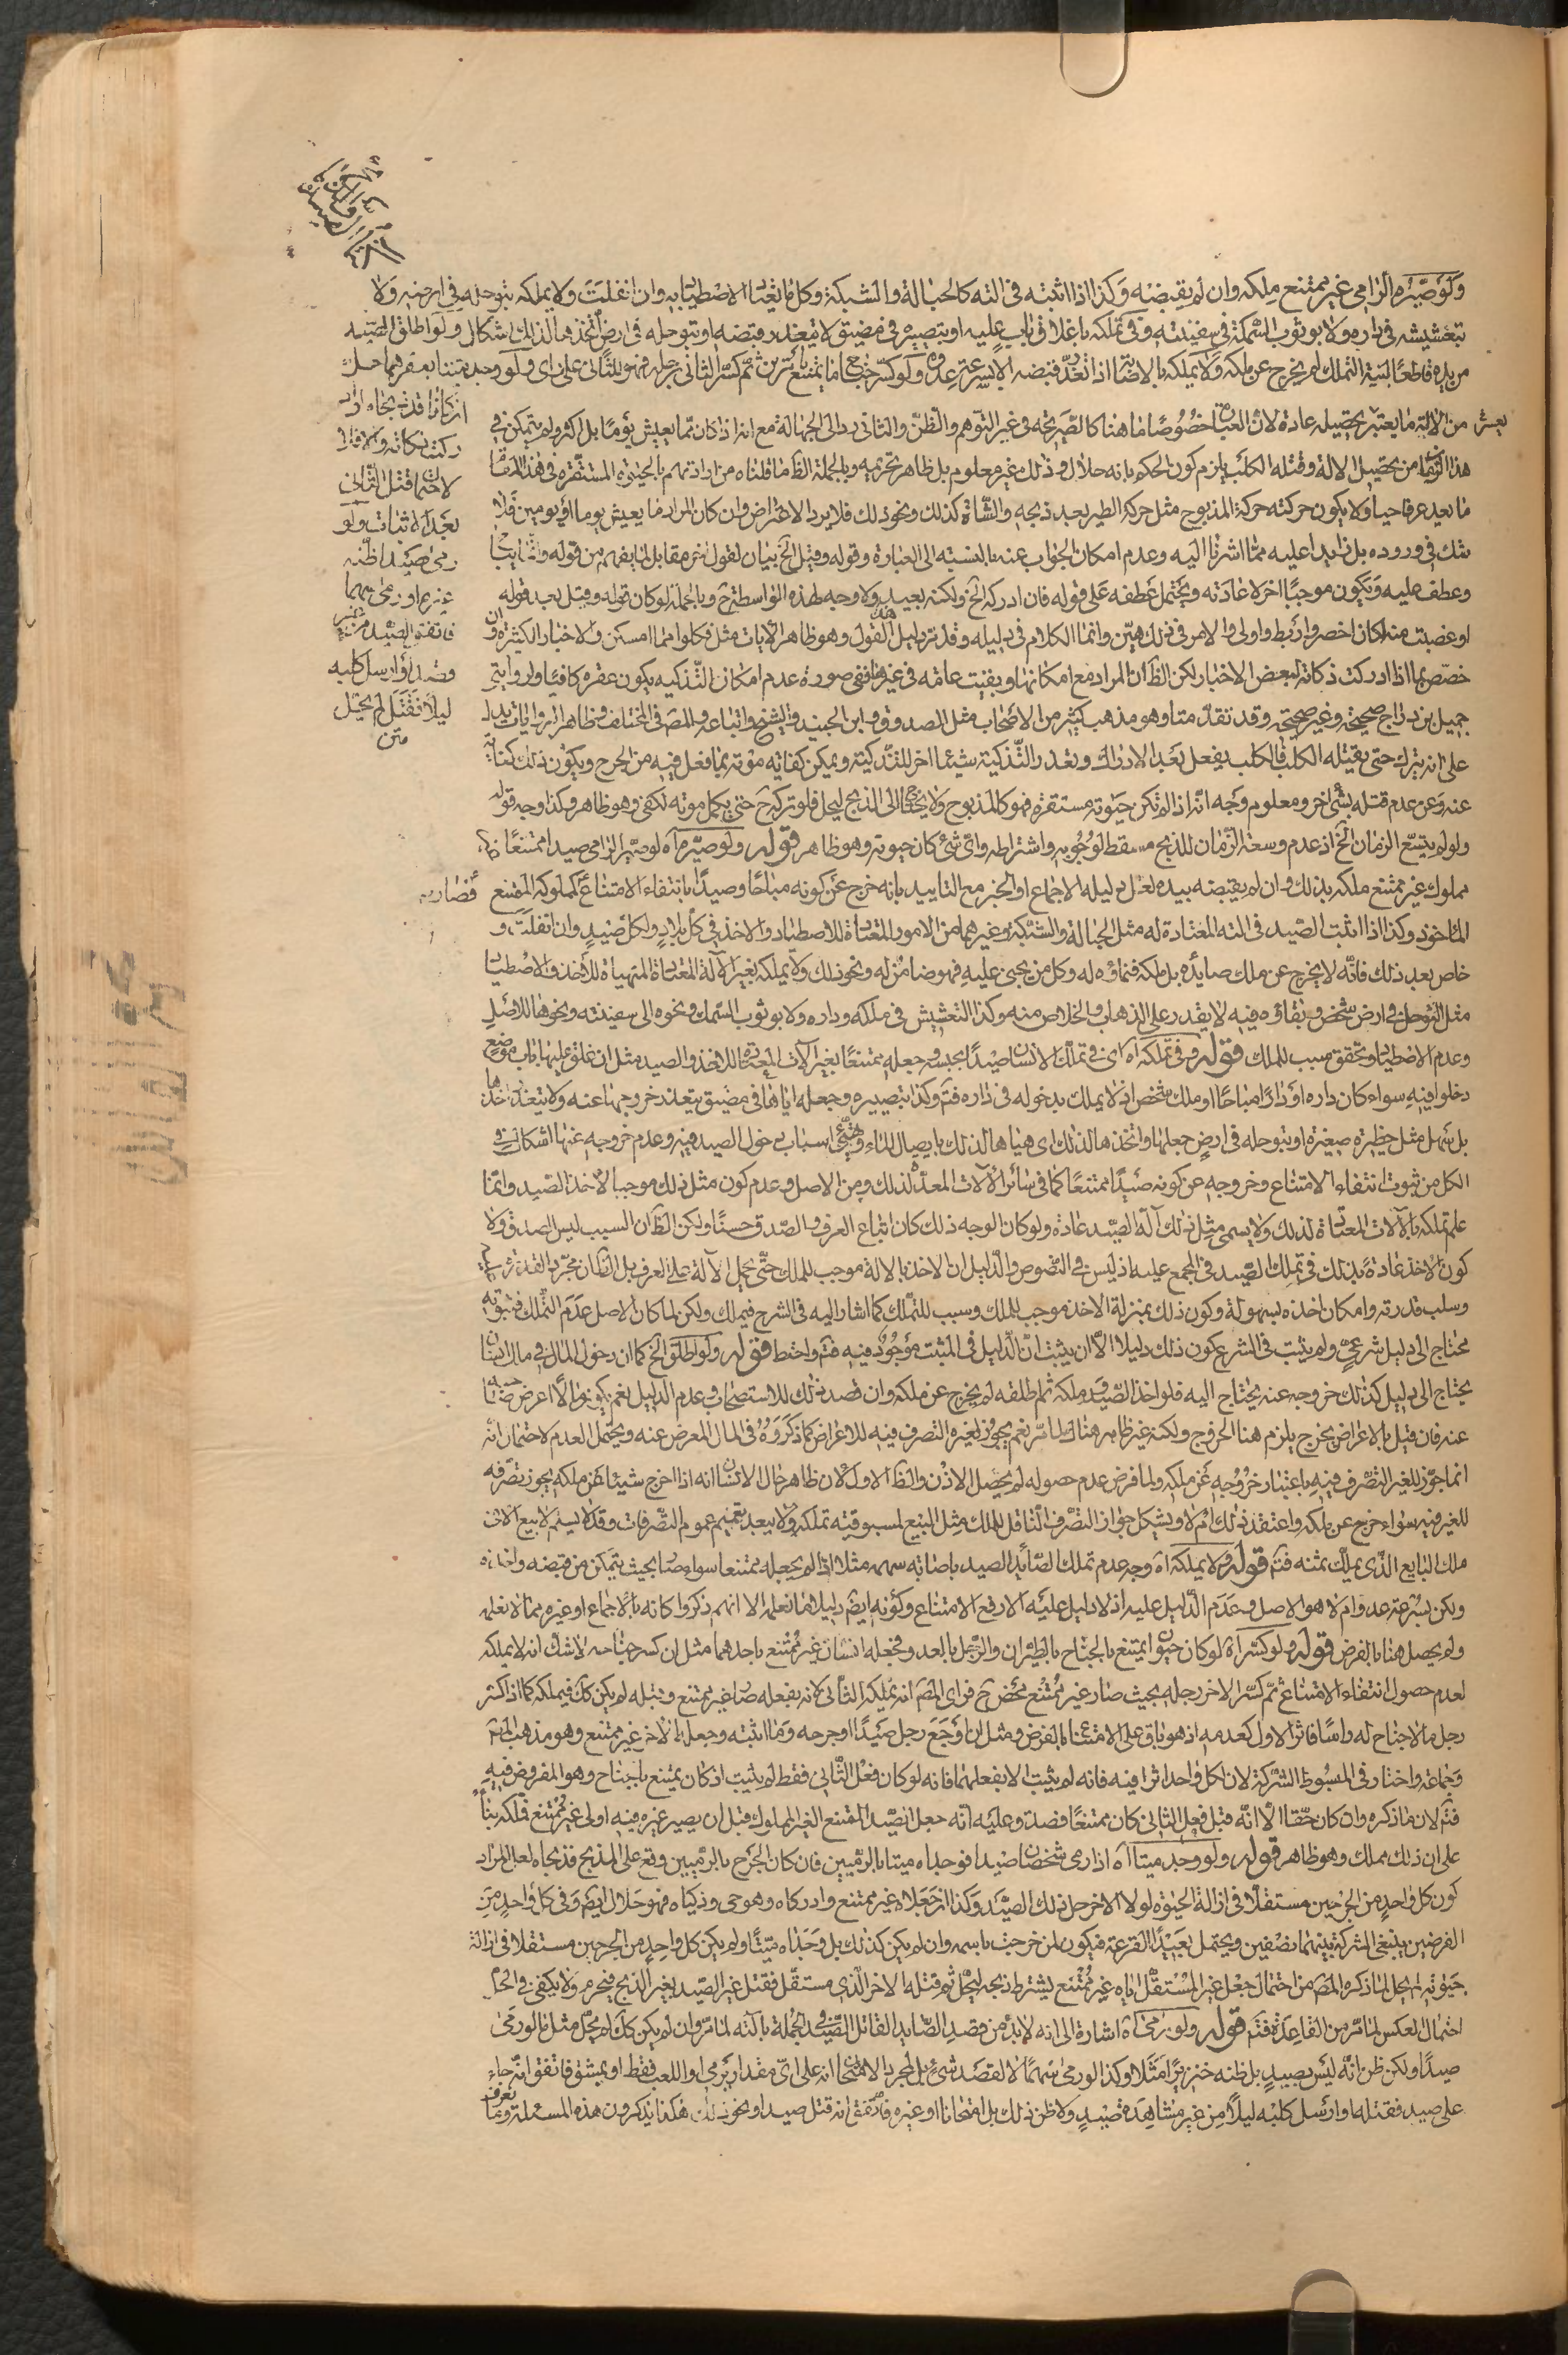 ولو صيّره الرامي غير ممتنع ملكه وان لم يقبضه وكذا اذا اثبته في الته كالحبالة والشبكة وكل ما يعتاد الاصطياد به وان انفلت ولا يملكه بتوحله في ارضه ولا
بتعشيشه في داره ولا بوثوب السمكة في سفينته وفي تملكه باغلاق باب عليه او بتصييره في مضيق لا يتعذر قبضه او بتوحله في ارض اتخذها لذلك اشكال ولو اطلق الصيد
من يده قاطعا لنية التملك لم يخرج عن ملكه ولا يملكه بالاصابة اذا تعذر قبضه الا بسرعة عدوه ولو كسر جناح ما يمتنع بأمرين ثم كسر الثاني رجله فهو للثاني على راى ولو وجد ميتا بعقرهما حل
ان كانا قد ذبحاه او
ادركت ذكاته والا فلا
لاحتمال قتل الثاني
بعد الاثبات ولو
رمى صيدا ظنه
خنزيرا ورمى سهما
فاتفق الصيد من غير
قصد او ارسل كلبه
ليلا فقتل لم يحل
متن
من الآلة ما يعتبر تحصيله عادة لان العبارة خصوصا ما هنا كالصريحة في غير التوهم والظن والثاني رد الى الجهالة مع انه اذا كان مما يعيش يوما بل اكثر ولم يتمكن في
هذا الزمان من تحصيل الالة وقتله الكلب يلزم كون الحكم بانه حلال وذلك غير معلوم بل ظاهر تحريمه وبالجملة الظ ما قلناه من ارادتهم بالحيوة المستقرة في هذا المقام
ما يعد عرفا حيا ولا يكون حركته حركة المذبوح مثل حركة الطير بعد ذبحه والشاة كذلك ونحو ذلك فلا يرد الاعتراض وان كان المراد ما يعيش يوما او يومين فلا
شك في وروده بل زايدا عليه مما اشرنا اليه وعدم امكان الجواب عنه بالنسبة الى العبارة وقوله وقيل الخ بيان لقول من مقابل لما يفهم من قوله
وعطف عليه ويكون موجبا اخر لاعادته ويحتمل عطفه على قوله فان ادركه الخ ولكنه بعيد ولا وجه لهذه الواسطة ح وبالجملة لو كان قوله وقيل بعد قوله
او غصبت منه لكان اخصر واربط واولى والامر في ذلك هين وانما الكلام في دليله وقد مر دليل القول وهو ظاهر الايات مثل فكلوا مما امسكن والاخبار الكثيرة وان
خصّص بما اذا ادركت ذكاته لبعض الاخبار لكن الظ ان المراد مع امكانها وبقيت عامة في غيرها ففي صورة عدم امكان التذكيه يكون عقره كافيا ولروايتي
جميل بن دراج صحيحة وغير صحيحة وقد تقدمتا وهو مذهب كثير من الاصحاب مثل الصدوق وابن الجنيد والشيخ واتباعه والمص في المختلف وظاهر الروايات يدل
على انه يترك حتى يقتله الكلب فالكلب يفعل بعد الادراك وتعذر التذكية شيئا اخر للتذكية ويمكن كفايه موته بما فعل فيه من الجرح ويكون ذلك كناية
عنه وعن عدم قتله بشئ اخر ومعلوم وجه انه اذا لم تكن حيوته مستقرة فهو كالمذبوح ولا يحتاج الى الذبح ليحل فلو تركه ح حتى يكمل موته لكفى وهو ظاهر وكذا وجه قوله
ولو لم يتسع الزمان الخ اذ عدم وسعة الزمان للذبح مسقط لوجوبه واشتراطه وائ شئ كان حيوته وهو ظاهر قوله ولو صيّره اه لو صيّر الرامي صيدا ممتنعا
مملوك غير ممتنع ملكه بذلك وان لم يقبضه بيده لعل دليله الاجماع او الخبر مع التاييد بانه خرج عن كونه مباحا وصيدا بانتفاء الامتناع كملوكه الممتنع فصار
الماخوذ وكذا اذا اثبت الصيد في الته المعتادة له مثل الحبالة والشبكة وغيرهما من الامور المعتادة للاصطياد والاخذ في كل بلاد ولكل صيد وان انفلت و
خاص بعد ذلك فانه لا يخرج عن ملك صايده بل ملكه فنماؤه له وكل من يجني عليه فهو ضامن له ونحو ذلك ولا يملكه بغير الآلة المعتادة المتهياة للاخذ والاصطياد
مثل التوحل في ارض شخص وبقاؤه فيه لا يقدر على الذهاب والخلاص منه وكذا التعشيش في ملكه وداره ولا بوثوب السمك ونحوه الى سفينته ونحوها للاصل
وعدم الاصطياد وتحقق سبب للملك قوله وفي تملكه اه اى في تملك الانسان صيدا بحبسه وجعله ممتنعا بغير الآلات المعتادة للاخذ والصيد مثل ان غلق عليها باب موضع
دخلوا فيه سواء كان داره او دارا مباحا او ملك شخص اذ لا يملك بدخوله في داره فتم وكذا بتصييره وجعله اياها في مضيق يتعذر خروجها عنه ولا يتعذر اخذها
بل سهل مثل حظيرة صغيرة او بتوحله في ارض جعلها واتخذها لذلك اى هياها لذلك بايصال الماء وتهيئ اسباب دخول الصيد فيه وعدم خروجه عنها اشكال في
الكل من ثبوت انتفاء الامتناع وخروجه عن كونه صيدا ممتنعا كما في سائر الآلات المعدة لذلك ومن الاصل وعدم كون مثل ذلك موجبا لاخذ الصيد وانما
علم تملكه بالآلات المعتادة لذلك ولا يسمى مثل ذلك آلة الصيد عادة ولو كان الوجه ذلك كان اتباع العرف والصدق حسنا ولكن الظ ان السبب ليس الصدق ولا
كون الاخذ عادة بذلك في تملك الصيد في المجمع عليه اذ ليس في النصوص والدليل ان الاخذ بالالة موجب للملك حتى يحمل الآلة على العرف بل الظ ان مجرد القدرة
وسلب قدرته وامكان اخذه بسهولة وكون ذلك بمنزلة الاخذ موجب للملك وسبب للتملك كما اشار اليه في الشرح فيملك ولكن لما كان الاصل عدم التملك فثبوته
محتاج الى دليل شرعي ولم يثبت في الشرع كون ذلك دليلا الا ان يثبت ان الدليل في المثبت موجود فيه فتم واحتط قوله ولو اطلق الخ كما ان دخول المال في مال انسان
يحتاج الى دليل كذلك خروجه عنه يحتاج اليه فلو اخذ الصيد وملكه ثم اطلقه لم يخرج عن ملكه وان قصد ذلك للاستصحاب وعدم الدليل نعم يكون مالا اعرض
عنه فان قيل بالاعراض يخرج يلزم هنا الخروج ولكنه غير ظاهر هنا لما مر نعم يجوز لغيره التصرف فيه للاعراض كما ذكروه في المال المعرض عنه ويحتمل العدم لاحتمال انه
انما جوّز للغير التصرف فيه باعتبار خروجه عن ملكه ولما فرض عدم حصوله لم يحصل الاذن والظ الاول لان ظاهر حال الانسان انه اذا اخرج شيئا عن ملكه يجوز تصرفه
للغير فيه سواء خرج عن ملكه واعتقد ذلك ام لا ويشكل جواز التصرف الناقل للملك مثل البيع لمسبوقيته تملكه ولا يبعد تعميم عموم التصرفات وقد لا يسلم لا بيع الا في
ملك البايع الذي يملك ثمنه فتم قوله ولا يملكه اه وجه عدم تملك الصائد الصيد باصابه سهمه مثلا اذا لم يجعله ممتنعا سواء صار بحيث يتمكن من قبضه واخذه
ولكن بسرعة عدو ام لا هو الاصل وعدم الدليل عليه اذ لا دليل عليه الا رفع الامتناع وكونه ايض دليلا ما نعلم الا انهم ذكروا كانه بالاجماع او غيره مما لا نعلم
ولم يحصل هنا بالفرض قوله ولو كسر اه لو كان حيوان يمتنع بالجناح بالطيران والرجل بالعدو فجعله انسان غير ممتنع باحدهما مثل ان كسر جناحه لا شك انه لا يملكه
لعدم حصول انتفاء الامتناع ثم كسر الاخر رجله بحيث صار غير ممتنع محض ح فراى المص انه يملكه الثاني لانه بفعله صار غير ممتنع وقبله لم يكن كك فيملكه كما اذا كسر
رجل ما لا جناح له واما فاثر الاول كعدمه اذ هو باق على الامتناع بالفرض ومثل ان اوجع رجل صيدا او جرحه وما اثبته وجعله الاخر غير ممتنع وهو مذهب المص
وجماعة واختار في المبسوط الشركة لان لكل واحد اثرا فيه فانه لم يثبت الا بفعلهما فانه لو كان فعل الثاني فقط لم يثبت اذ كان يمتنع بالجناح وهو المفروض فيه
فتم لان ما ذكره وان كان حقا الا انه قبل فعل الثاني كان ممتنعا فصدق عليه انه جعل الصيد الممتنع الغير المملوك قبل ان يصير غيره فيه اولى غير ممتنع فملكه بناء
على ان ذلك مملك وهو ظاهر قوله ولو وجد ميتا اه اذا رمى شخصان صيدا فوجداه ميتا بالرميين فان كان الجرح بالرميين وقع على المذبح فذبحاه لعل المراد
كون كل واحد من الجرحين مستقلا في ازالة الحيوة لولا الاخر حل ذلك الصيد وكذا ان جعلاه غير ممتنع وادركاه وهو حي وذكياه فهو حلال ايض وفي كل واحد من
الفرضين ينبغي الشركة بينهما نصفين ويحتمل بعيدا القرعة فيكون لمن خرجت باسمه وان لم يكن كذلك بل وجداه ميتا ولم يكن كل واحد من الجرحين مستقلا في ازالة
حيوته لم يحل لما ذكره المص من احتمال جعل غير المستقل اياه غير ممتنع يشترط ذبحه ليحل ثم قتله الاخر الذي مستقل فقتل غير الصيد بغير الذبح فيحرم ولا يكفي في الحل
احتمال العكس لما مر من القاعدة فتم قوله ولو رمى اه اشارة الى انه لا بد من قصد الصايد القاتل الصيد في الجملة بآلته لما مر وان لم يكن كك لم يحل مثل ما لو رمى
صيدا ولكن ظن انه ليس بصيد بل ظنه خنزيرا مثلا وكذا لو رمى سهما لا لقصد شئ بل لمجرد الامتحان انه على اى مقدار يرمي او اللعب فقط او يمشق فاتفق انه جاء
على صيد فقتله او ارسل كلبه ليلا من غير مشاهدة صيد ولا ظن ذلك بل امتحانا او غيره فاتفق انه قتل صيدا ونحو ذلك هكذا يذكرون هذه المسئلة وما